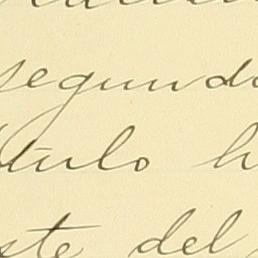 segundo
título h
ste del